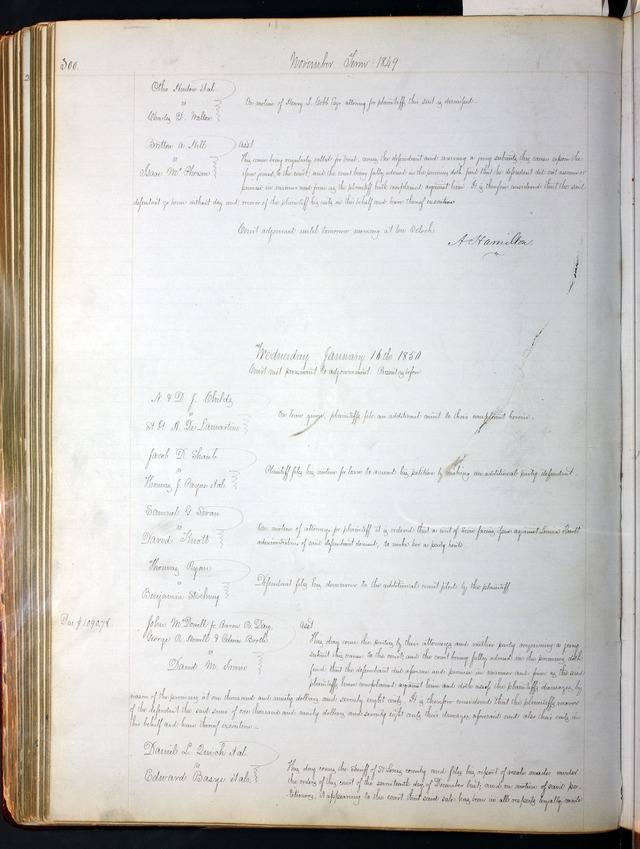 300.
November Term 1849
Otho Hinton et al.
vs
Charles D. Walter
On motion of Henry S. Cobb Esqr attorney for plaintiffs this suit is dismissed.
Britton A. Hill
vs
Isaac McChesen
Asst
This cause being regularly called for trial, comes the defendant and waiving a jury submits this cause upon the
plea joined to the court, and the court being fully advised in the premises doth find that the defendant did not assume or
promise in manner and form as the plaintiff hath complained against him. It is therefore considered that the said
defendant go hence without day and recover of the plaintiff his costs in this behalf and have thereof execution
Court adjourned until tomorrow morning at ten O'clock
A Hamilton
Wednesday January 16th 1850
Court met pursuant to adjournment. Present as before
N. & D. J. Childs
vs
St. Ft. A. De Lamartine
On leave given, plaintiffs file an additional count to their complaint herein.
Jacob D. Shaub
vs
Thomas J. Payne et al.
Plaintiff files his motion for leave to amend his petition by making an additional party defendant.
Samuel G. Sloan
vs
David Knott
On motion of attorney for plaintiff it is ordered that a writ of Scire facias issue against Knott
administratrix of said defendant deceased, to make her a party hereto
Thomas Ryan
vs
Benjamin
Defendant files his demurrer to the additional count filed by the plaintiff
Dam $1090.78
John McDowell jr. Aaron R. Day,
George A. & Booth
vs
David M.
Asst
This day come the parties by their attorneys and neither party requiring a jury
submit this cause to the court, and the court being fully advised in the premises doth
find that the defendant did assume and promise in manner and form as the said
plaintiffs have complained against him and doth assess the plaintiffs damages by
reason of the premises at one thousand and ninety dollars and seventy eight cents. It is therefore considered that the plaintiffs recover
of the defendant the said sum of one thousand and ninety dollars and seventy eight cents their damages aforesaid and also their costs in
this behalf and have thereof execution.
Daniel L. et al.
vs
Edward Basye et al.
This day comes the Sheriff of St Louis county and files his report of sale made under
the order of this court of the seventeenth day of December last, and on motion of said pe-
titioners, it appearing to the court that said sale has been in all respects legally made